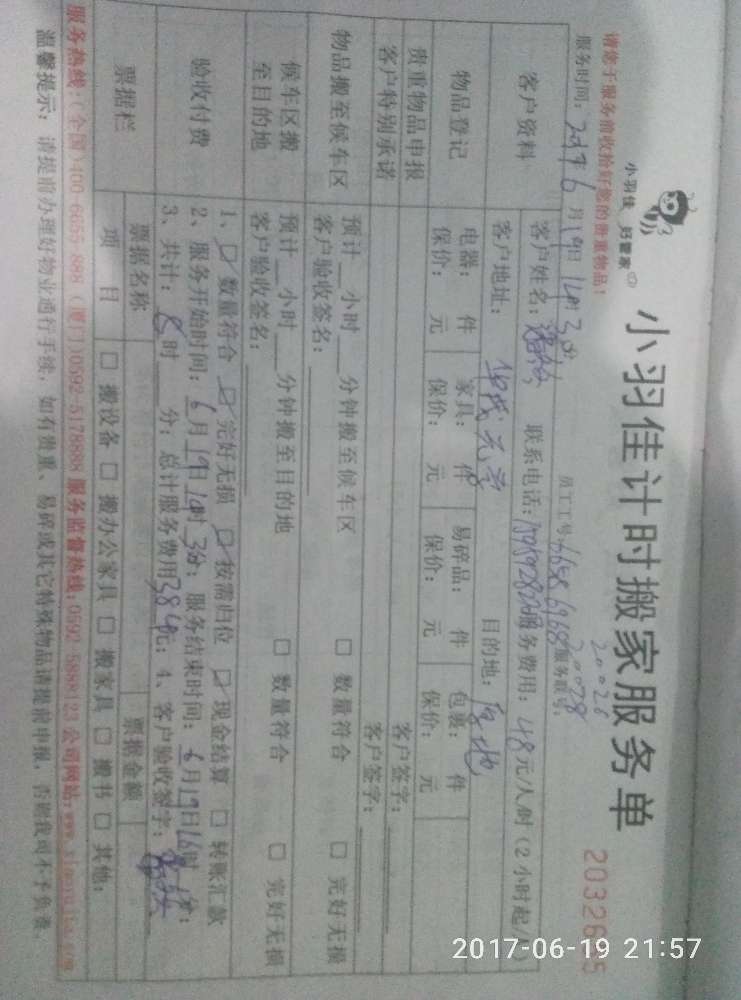 小羽佳 好管家
小羽佳计时搬家服务单
请您于服务前收拾好您的贵重物品!
服务时间: 2017年6月19日 时3分 员工工号: 服务联号:
20026
20028
客户资料
客户姓名: 联系电话: 服务费用: 48元/人/时(2小时起/人)
客户地址: 目的地:
物品登记
电器: 件 家具: 件 易碎品: 件 包裹: 件
保价: 元 保价: 元 保价: 元 保价: 元
贵重物品申报 客户签字:
客户特别承诺 客户签字:
物品搬至候车区
预计__小时__分钟搬至候车区 □ 数量符合 □ 完好无损
客户验收签名:
候车区搬
至目的地
预计__小时__分钟搬至目的地 □ 数量符合 □ 完好无损
客户验收签名:
验收付费
1、☑ 数量符合 ☑ 完好无损 ☑ 按需归位 ☑ 现金结算 □ 转账汇款
2、服务开始时间: 6月19日 时3分; 服务结束时间: 6月19日16时 分;
3、共计: 8时 分; 总计服务费用384元; 4、客户验收签字:
票据栏
票据名称 票据金额
项 目 □ 搬设备 □ 搬办公家具 □ 搬家具 □ 搬书 □ 其他:
服务热线:(全国)400-6655-888 (厦门)0592-5178888 服务监督热线:0592-5888123 公司网站:
温馨提示: 请提前办理好物业通行手续, 如有贵重、易碎或其它特殊物品请提前申报, 否则我司不予负责.
2017-06-19 21:57